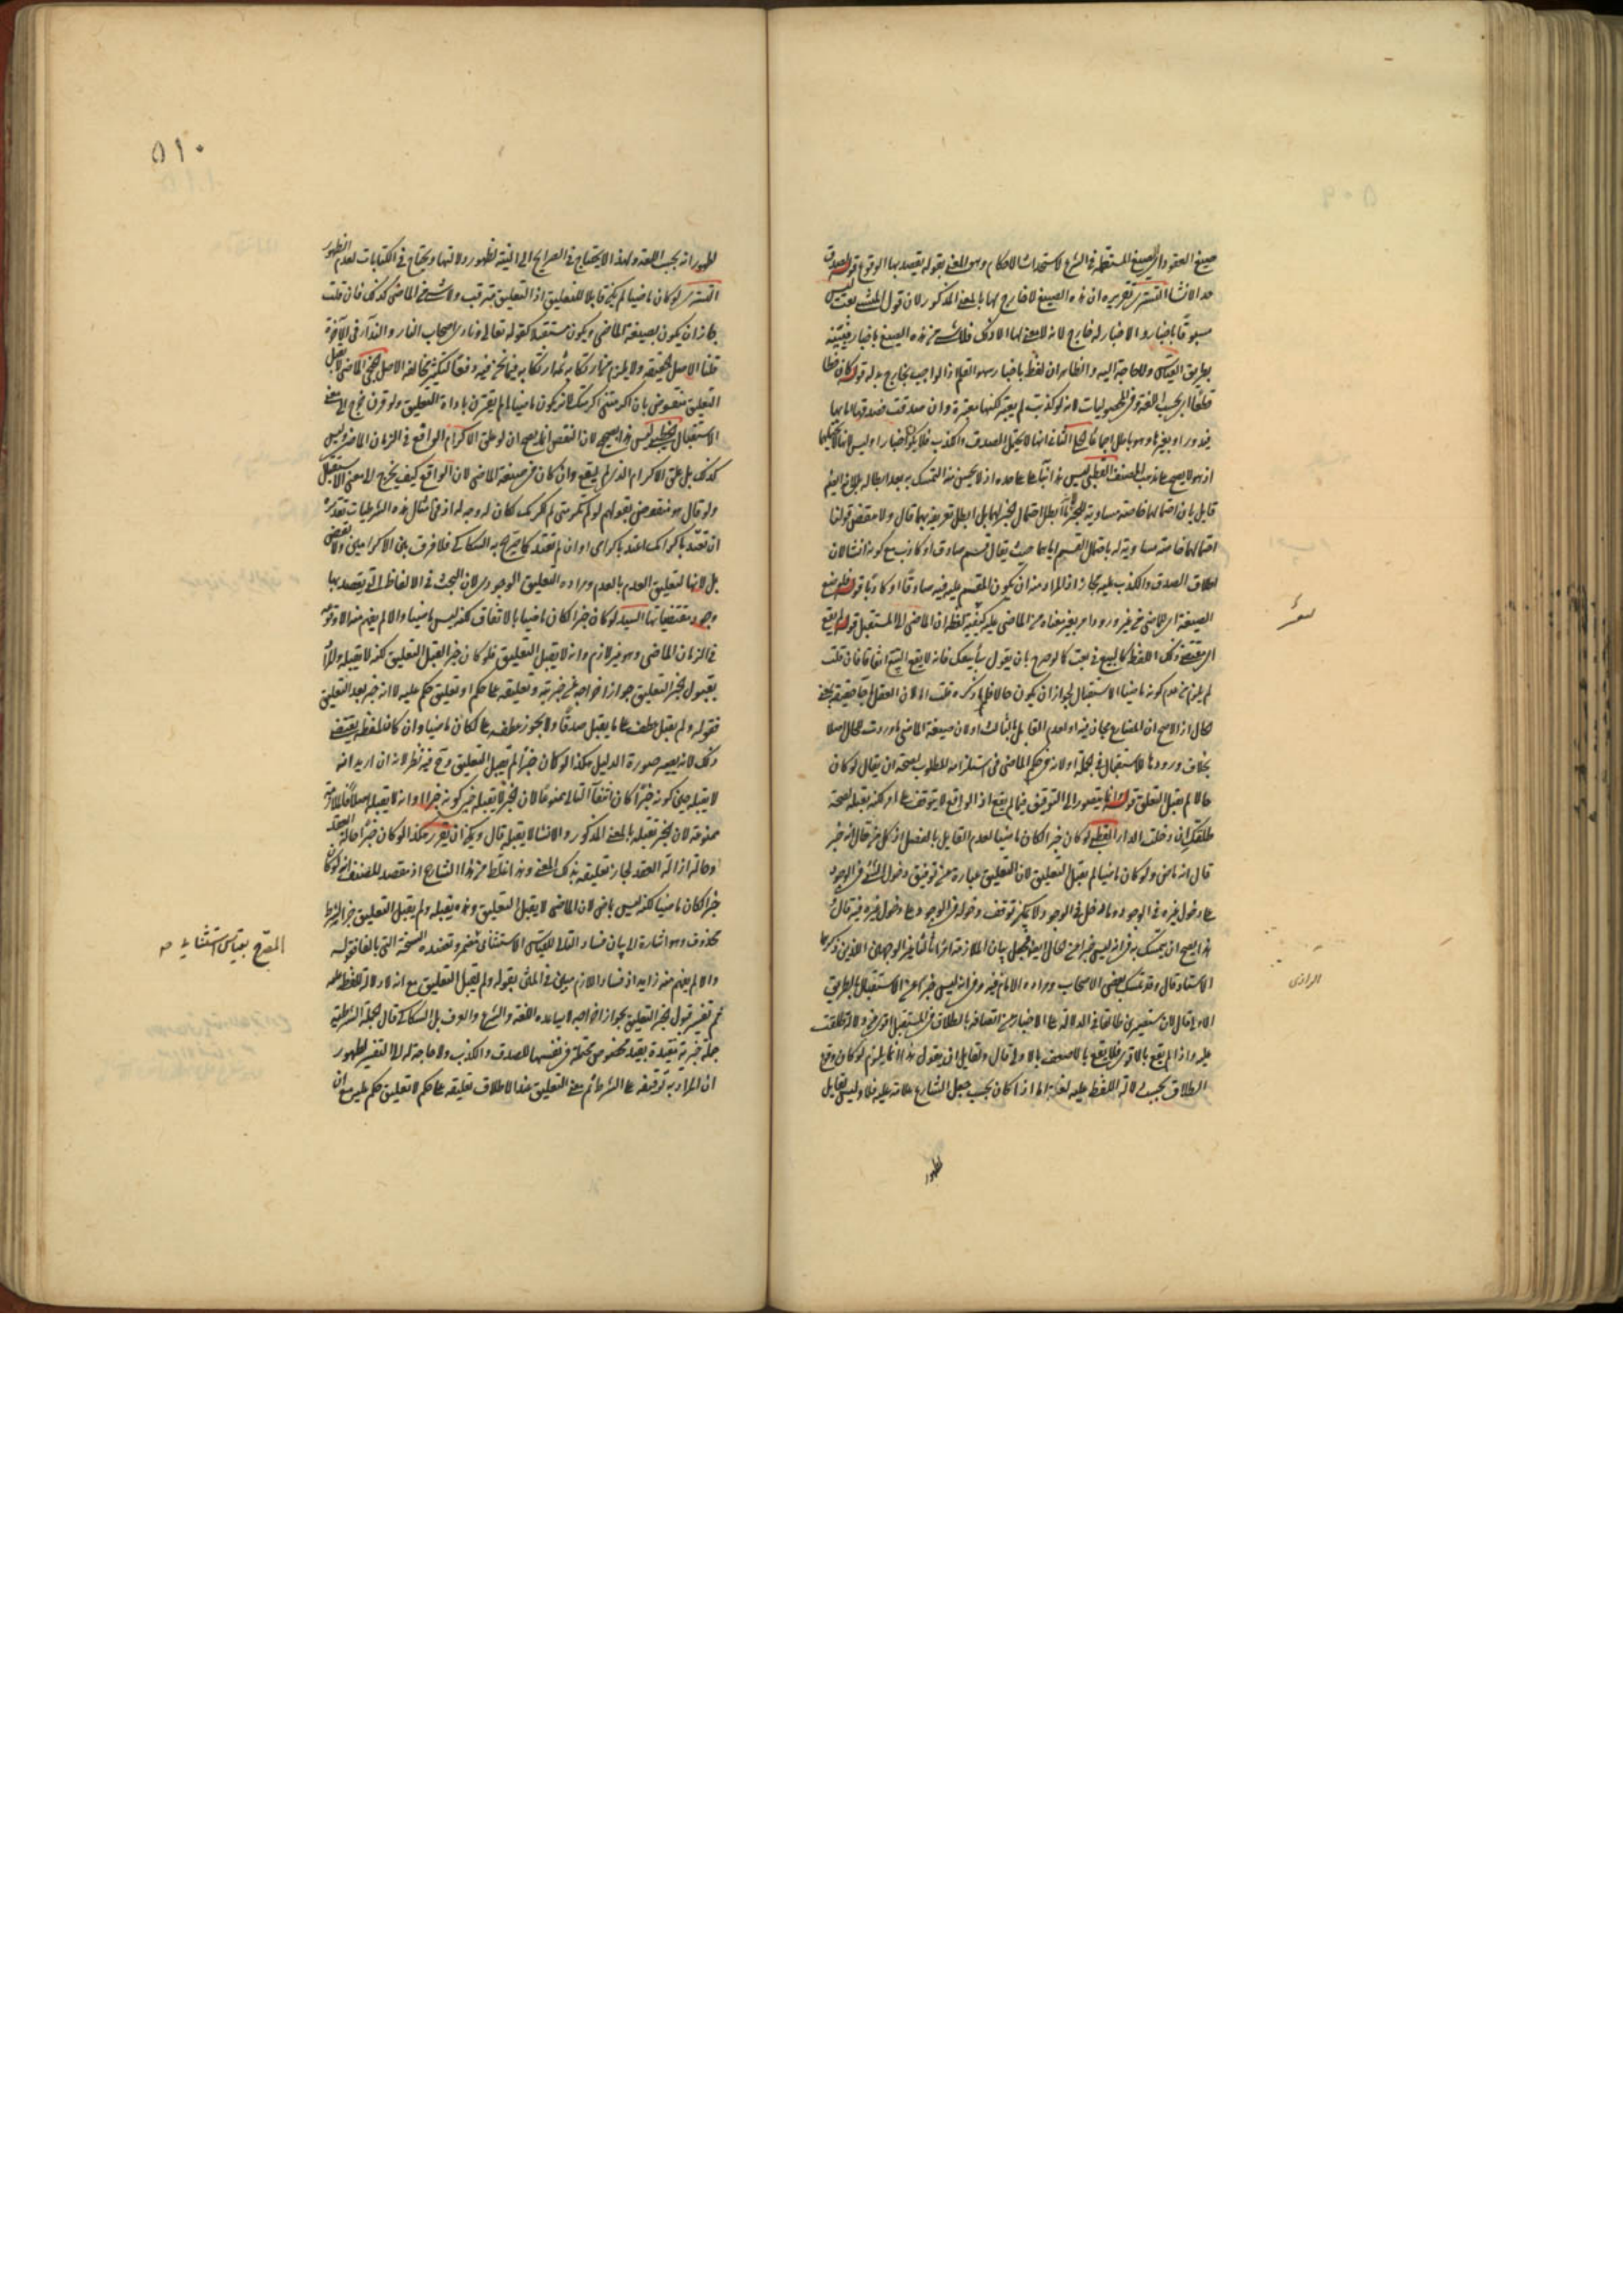 صيغ العقود اى الصيغ المستعملة فى الشرع لاستحداث الاحكام وهو المعنى بقوله يقصد بها الوقوع قوله لصدق
حد الانشاء التسترى تقريره ان هذه الصيغ لا خارج لها بالمعنى المذكور لان قول المنشى بعت ليس
مسبوقا باخبار والاخبار له خارج لانه لا معنى لها الا ذلك فلا شى من هذه الصيغ باخبار
بطريق القياس ولا حاجة اليه والظاهر ان لفظ باخبار سهو القلم اذ الواجب بخارج بدله قوله كان خطا
قطعا اى بحسب اللغة لانه لو كذبت لم يعتبر لكنها معتبرة وان صدقت فصدقها اما بها
فيدور او بغيرها وهو باطل اجماعا الثانى انها لا يحتمل الصدق والكذب فلا يكون اخبارا وليس
اذ هو لا يصح على مذهب المصنف القطبى ليس هذا بناء على ما حده اذ لا يحسن منه التمسك به بعد ابطاله
قايل بان احتمالها خاصة مساوية للخبر ابطل تعريفه بهما قال ولا منقض قولنا
احتمالهما خاصة مساوية له باحتمال القسم اياهما حيث يقال قسم صادق او كاذب مع كونه انشاء لان
اطلاق الصدق والكذب عليه مجاز اذ المراد منه ان يكون المقسم عليه فيه صادقا او كاذبا قوله
الصيغة اى للماضى من غير ورود امر يغير معناه من الماضى عليه لفظة ان الماضى الى المستقبل قوله لم يقع
اى مقتضى ذلك اللفظ كالبيع فى بعت كما لو صرح بان يقول سابيعك فانه لا يقع البيع اتفاقا فان قلت
لم يلزم من عدم كونه ماضيا الاستقبال لجواز ان يكون حالا قلت
الحال اذ الاصح ان المضارع مجاز فيه او لعدم القايل بالثالث او لان صيغة الماضى ما وردت للحال اصلا
بخلاف ورودها للاستقبال فى الجملة او لانه فى حكم الماضى فى استلزامه للمطلوب لصحة ان يقال لو كان
حالا لم يقبل التعليق قوله انما يتصور اى التوقف فيما لم يقع اذ الواقع لا يتوقف على امر لكنه يقبله لصحة
طلقتك ان دخلت الدار القطبى لو كان خبرا لكان ماضيا لعدم القايل بالفصل اذ كل من قال انه خبر
قال انه ماض ولو كان ماضيا لم يقبل التعليق لان التعليق عبارة عن توقيف دخول الشى فى الوجود
على دخول غيره فى الوجود وما دخل فى الوجود لا يمكن توقف دخوله فى الوجود على دخول غيره فيه قال
هذا يصح ان يتمسك به فى انه ليس خبرا عن الحال ايضا
الاستاذ قال وقد تمسك بعض الاصحاب ومراده الامام فيه وفى انه ليس خبرا عن الاستقبال بالطريق
الاولى قال لان ستصيرين طالقا فى الدلالة على الاخبار عن اتصافه بالطلاق فى المستقبل اقوى من دلالة طلقت
عليه واذا لم يقع بالاقوى فلا يقع بالاضعف بالاولى قال ولقايل ان يقول هذا انما يلزم لو كان وقوع
الطلاق بحسب دلالة اللفظ عليه لغة اما اذا كان بحسب جعل الشارع علامة عليه فلا وليس لقايل
ظهور
الرازى
٥١٠
ظهور انه بحسب اللغة ولهذا لا يحتاج فى الصرايح الى النية لظهور دلالتها ويحتاج فى الكنايات لعدم الظهور
التسترى لو كان ماضيا لم يكن قابلا للتعليق اذ التعليق مترقب ولا شى من الماضى كذلك فان قلت
جاز ان يكون بصيغة الماضى ويكون مستقبلا كقوله تعالى ونادى اصحاب النار والندا فى الآخرة
قلنا الاصل الحقيقة ولا يلزم من ارتكابه ثمه ارتكابه فيما نحن فيه دفعا لتكثير مخالفة الاصل الماضى لا يقبل
التعليق منقوض بان اكرمتنى اكرمتك لانه يكون ماضيا لم يقترن باداة التعليق ولو قرن خرج الى معنى
الاستقبال ليس هذا بصحيح لان النقض انما يصح ان لو علق الاكرام الواقع فى الزمان الماضى وليس
كذلك بل علق الاكرام الذى لم يقع وان كان فى صيغة الماضى لان الواقع كيف يخرج الى معنى الاستقبال
ولو قال هو منقوض بقولهم لو لم تكرمنى لم اكرمك لكان له وجه اذ فى امثال هذه الشرطيات تقديره
ان تعتد باكرامك اعتد باكرامى او ان لم تعتد كما صرح به السكاكى فلا فرق بين الاكرامين ولا نقض
بل لانها لتعليق العدم بالعدم ومراده التعليق الوجودى لان البحث فى الالفاظ التى يقصد بها
وجود مقتضياتها السيد لو كان خبرا لكان ماضيا بالاتفاق لكنه ليس ماضيا والا لم يفهم منه الا وقوعه
فى الزمان الماضى وهو غير لازم وانه لا يقبل التعليق فلو كان خبرا لقبل التعليق لكنه لا يقبله والمراد
بقبول الخبر التعليق جواز اخراجه عن خبريته وتعليقه على حكم او تعليق حكم عليه لا انه خبر بعد التعليق
فقوله ولم يقبل عطف على ما يقبل صدقا ولا يجوز عطفه على لكان ماضيا وان كان لفظه يقتضى
ذلك لانه يصير صورة الدليل هكذا لو كان خبرا لم يقبل التعليق وح فيه نظر لانه ان اريد انه
لا يقبله حين كونه خبرا كان انتفا التالى ممنوعا لان الخبر لا يقبله حين كونه خبرا وانه لا يقبله اصلا فالملازمة
ممنوعة لان الخبر تقبله بالمعنى المذكور والانشاء لا يقبله قال ويمكن ان يقرر هكذا لو كان خبرا حالة العقد
وحالة ازالة العقد لجاز تعليقه بذلك المعنى وهذا غلط من هذا الشارح اذ مقصد المصنف انه لو كان
خبرا لكان ماضيا لكنه ليس بماض لان الماضى لا يقبل التعليق وهذه يقبله ولم يقبل التعليق جزا لشرط
محذوف وهو اشارة الى بيان فساد التالى للقياس الاستثنائى المضمر وتعضده النسخة التى بالفا قوله
والا لم يفهم منه زايد اذ فساد اللازم مبين فى المتن بقوله ولم يقبل التعليق مع انه لا دلالة للفظ عليه
ثم تفسير قبول الخبر التعليق بجواز اخراجه لا يساعده اللغة والشرع والعرف بل السكاكى قال الجملة الشرطية
جملة خبرية مقيدة بقيد مخصوص محتملة فى نفسها للصدق والكذب ولا حاجة له الى التفسير لظهور
ان المراد به توقيفه على الشرط ثم معنى التعليق عند الاطلاق تعليقه على حكم لا تعليق حكم عليه مع ان
المصرح بقياس استثنائى صه